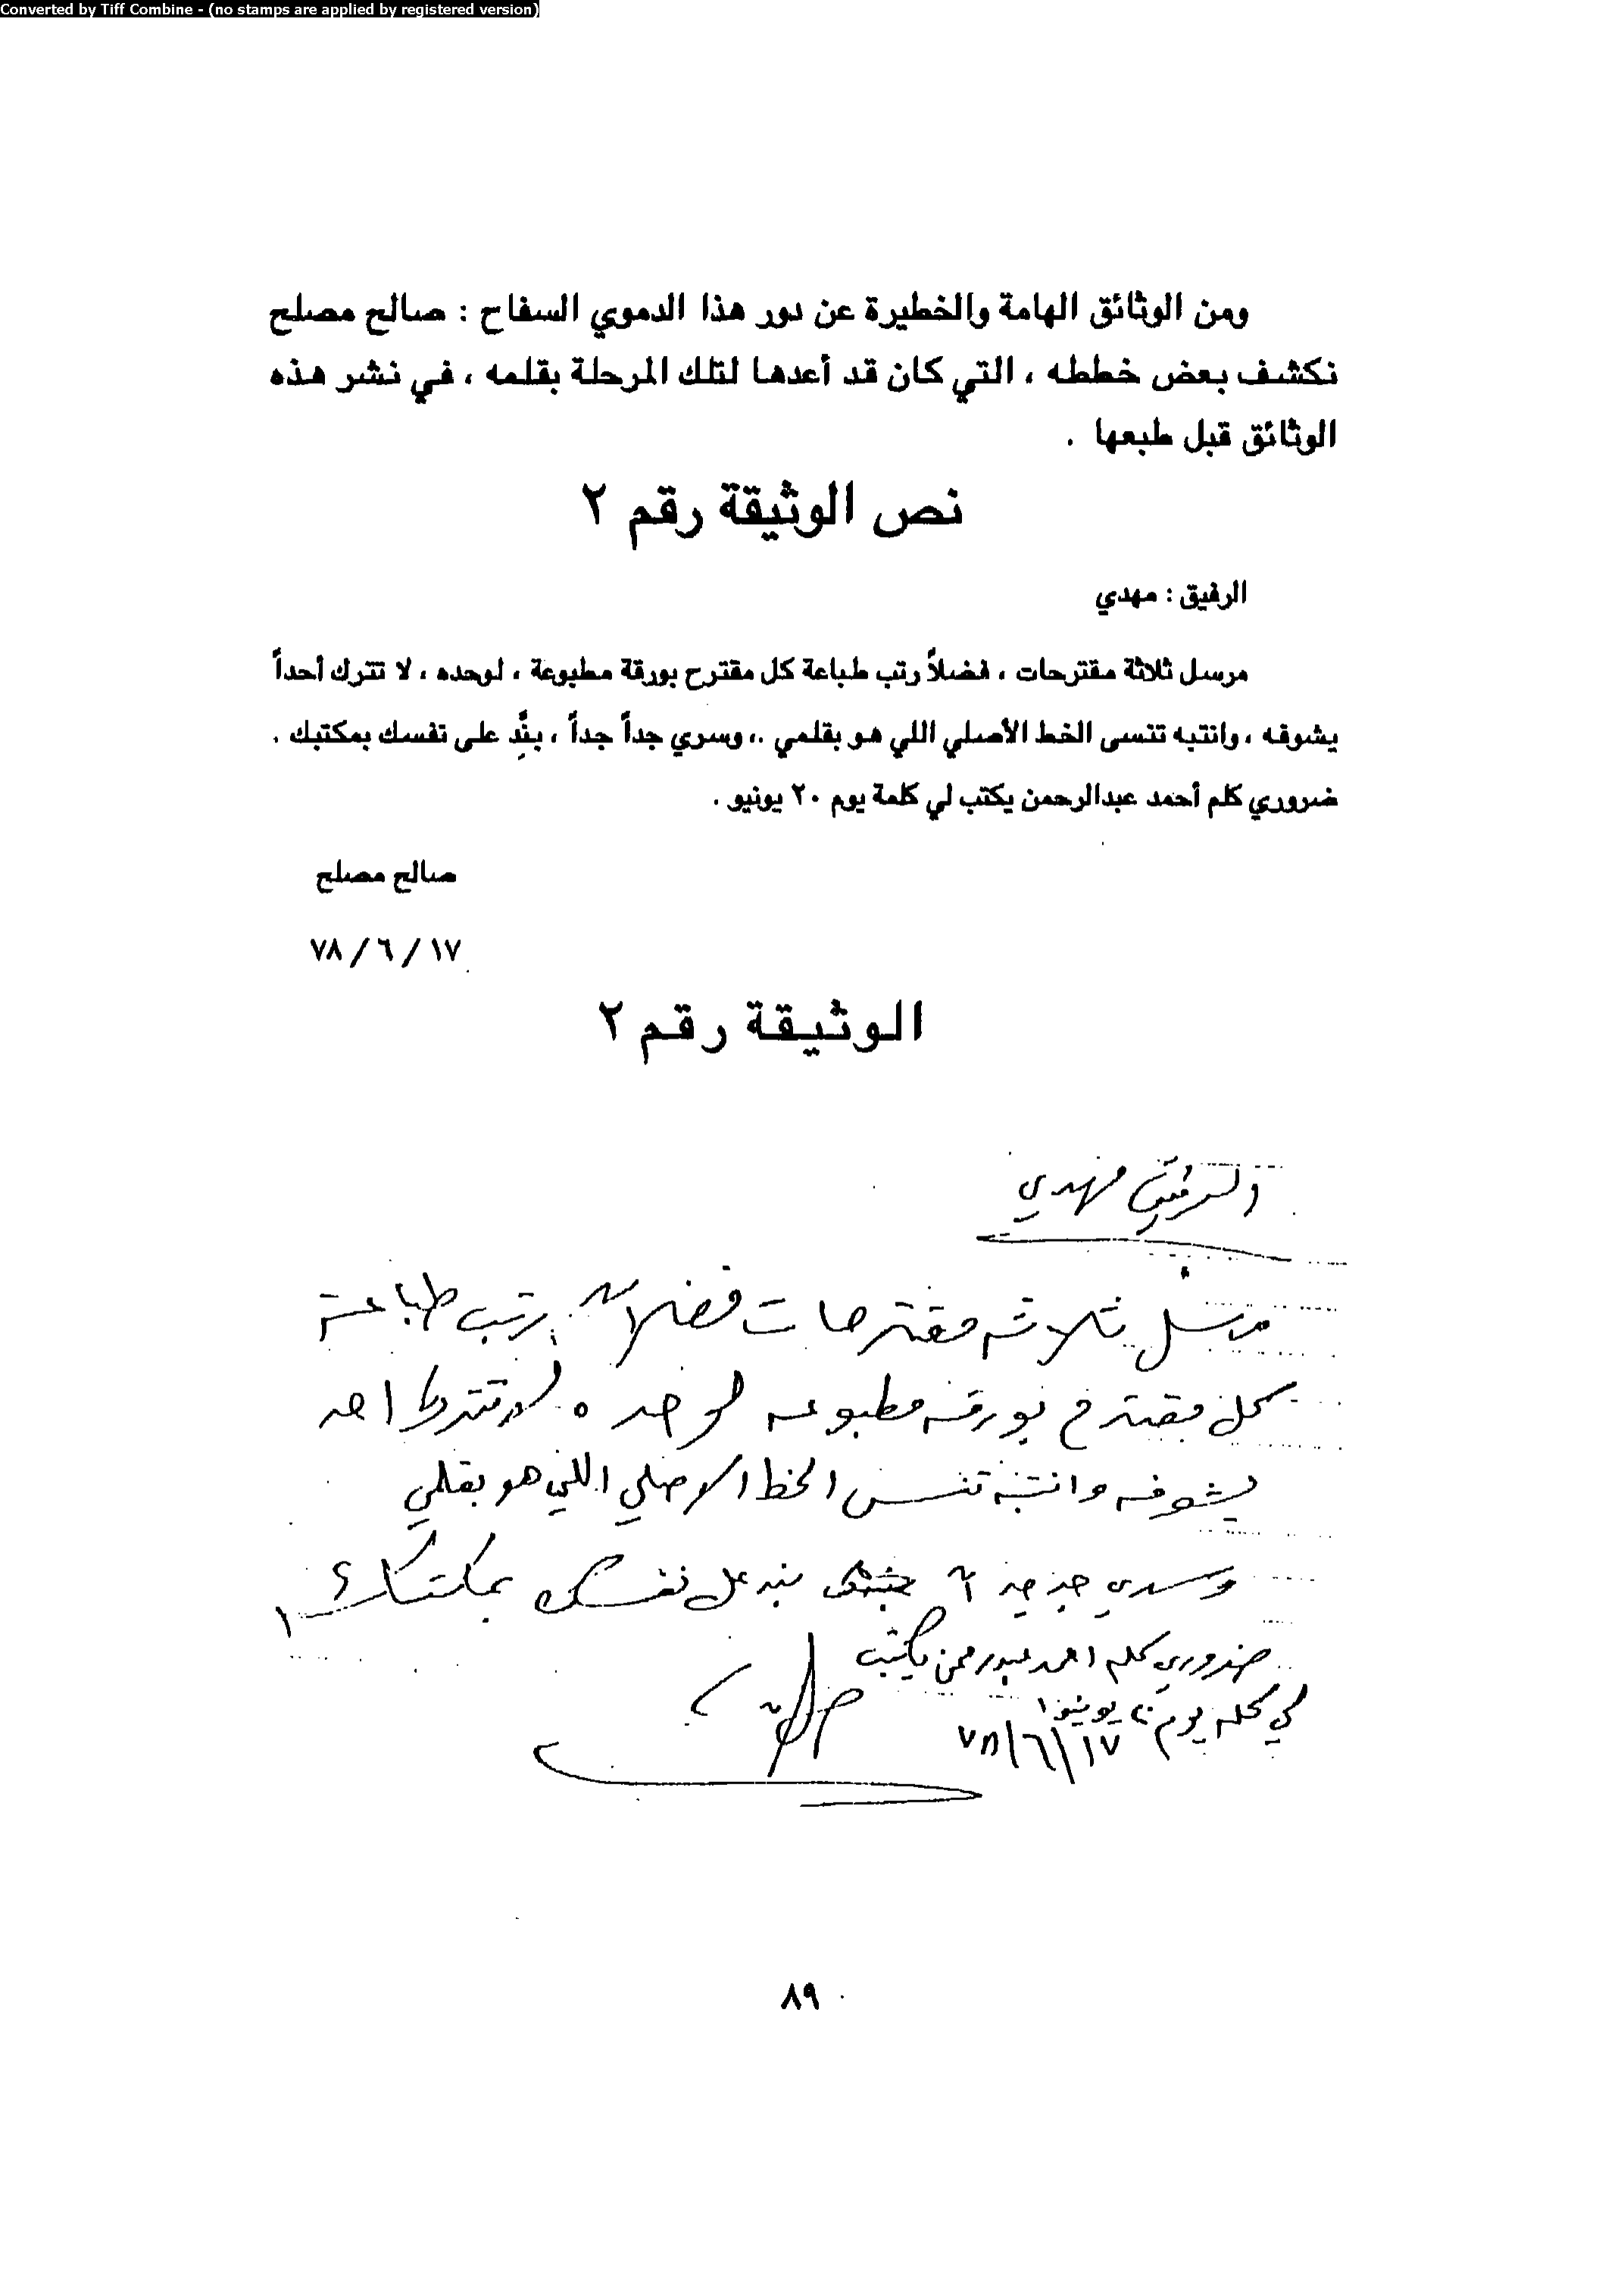 Converted by Tiff Combine - (no stamps are applied by registered version)
ومن الوثائق الهامة والخطيرة عن دور هذا الدموي السفاح : صالح مصلح
نكشف بعض خططه ، التي كان قد أعدها لتلك المرحلة بقلمه ، في نشر هذه
الوثائق قبل طبعها .
نص الوثيقة رقم ٢
الرفيق : مهدي
مرسل ثلاثة مقترحات ، فضلاً رتب طباعة كل مقترح بورقة مطبوعة ، لوحده ، لا تترك أحداً
يشوفه ، وانتبه تنسى الخط الأصلي اللي هو بقلمي .، وسري جداً جداً ، بنِّد على نفسك بمكتبك .
ضروري كلم أحمد عبدالرحمن يكتب لي كلمة يوم ٢٠ يونيو .
صالح مصلح
١٧ / ٦ / ٧٨
الوثيقة رقم ٢
الرفيق مهدي
مرسل ثلاثه مقترحات فضلا رتب طباعة
كل مقترح بورقه مطبوعه لوحده لا تترك احد
يشوفه وانتبه تنسى الخط الاصلي اللي هو بقلمي
وسري جد جد بند على نفسك بمكتبك
ضروري كلم احمد عبدرحمن يكتب
لي كلمه يوم ٢٠ يونيو
٧٨/٦/١٧
٨٩